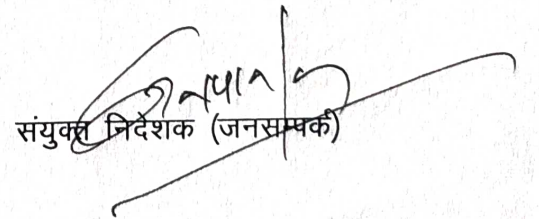 संयुक्त निदेशक (जनसम्पर्क)